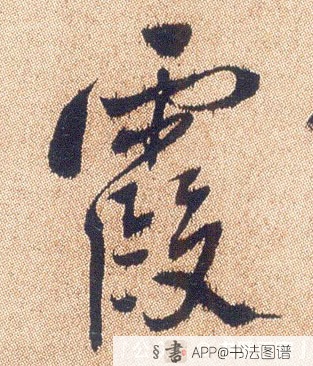 霞
§書 APP@书法图谱